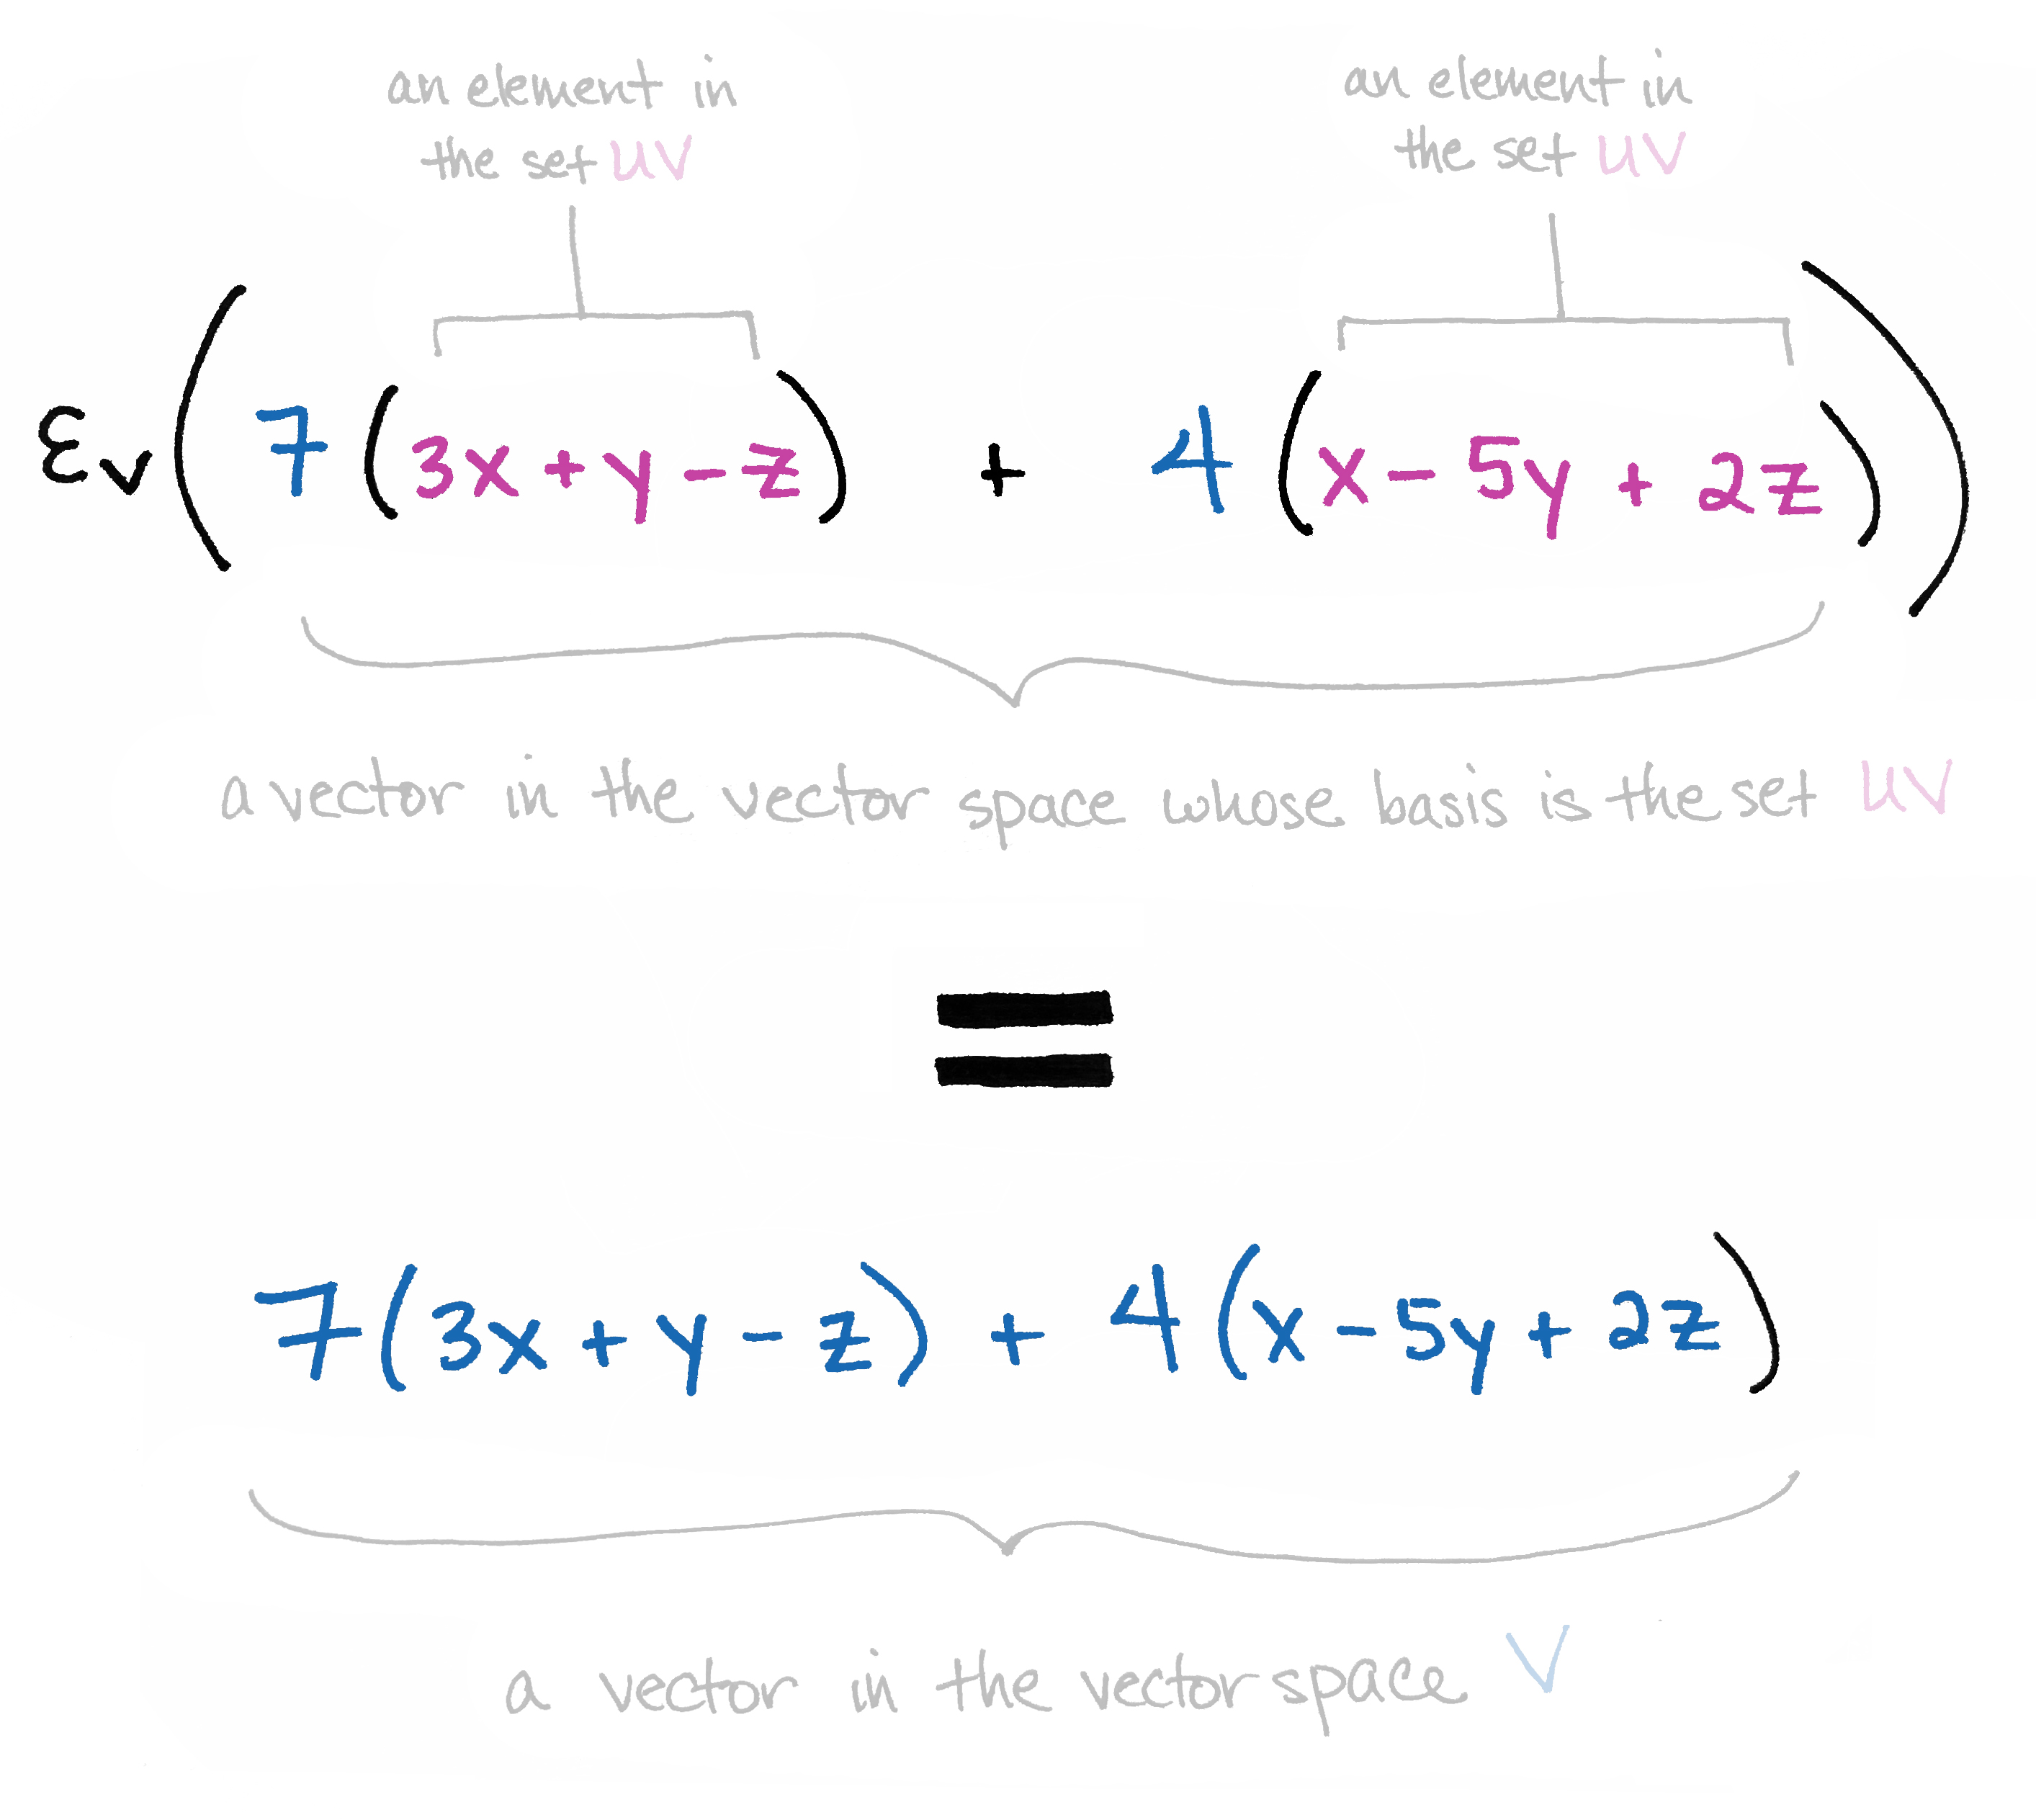 an element in
the set UV
an element in
the set UV
εᵥ(7(3x+y-z) + 4(x-5y+2z))
a vector in the vector space whose basis is the set UV
=
7(3x+y-z) + 4(x-5y+2z)
a vector in the vector space V